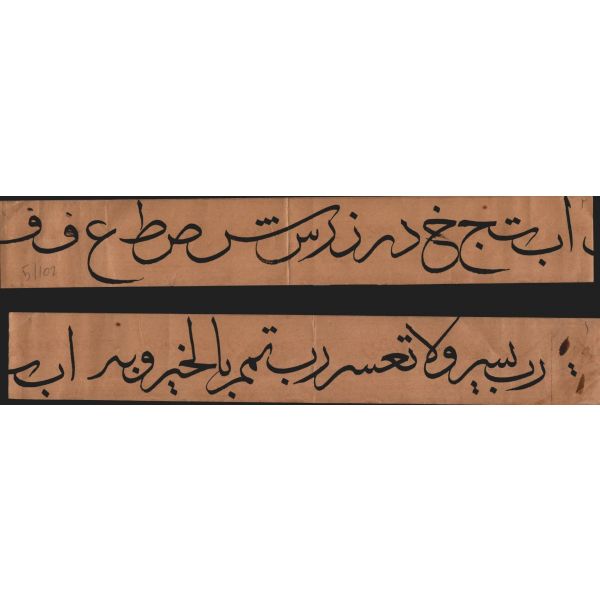 ٢
ا ب ت ج خ د ر ز س ش ص ط ع ف ف
5/102
رب يسر ولا تعسر رب تمم بالخير وبه ا ب